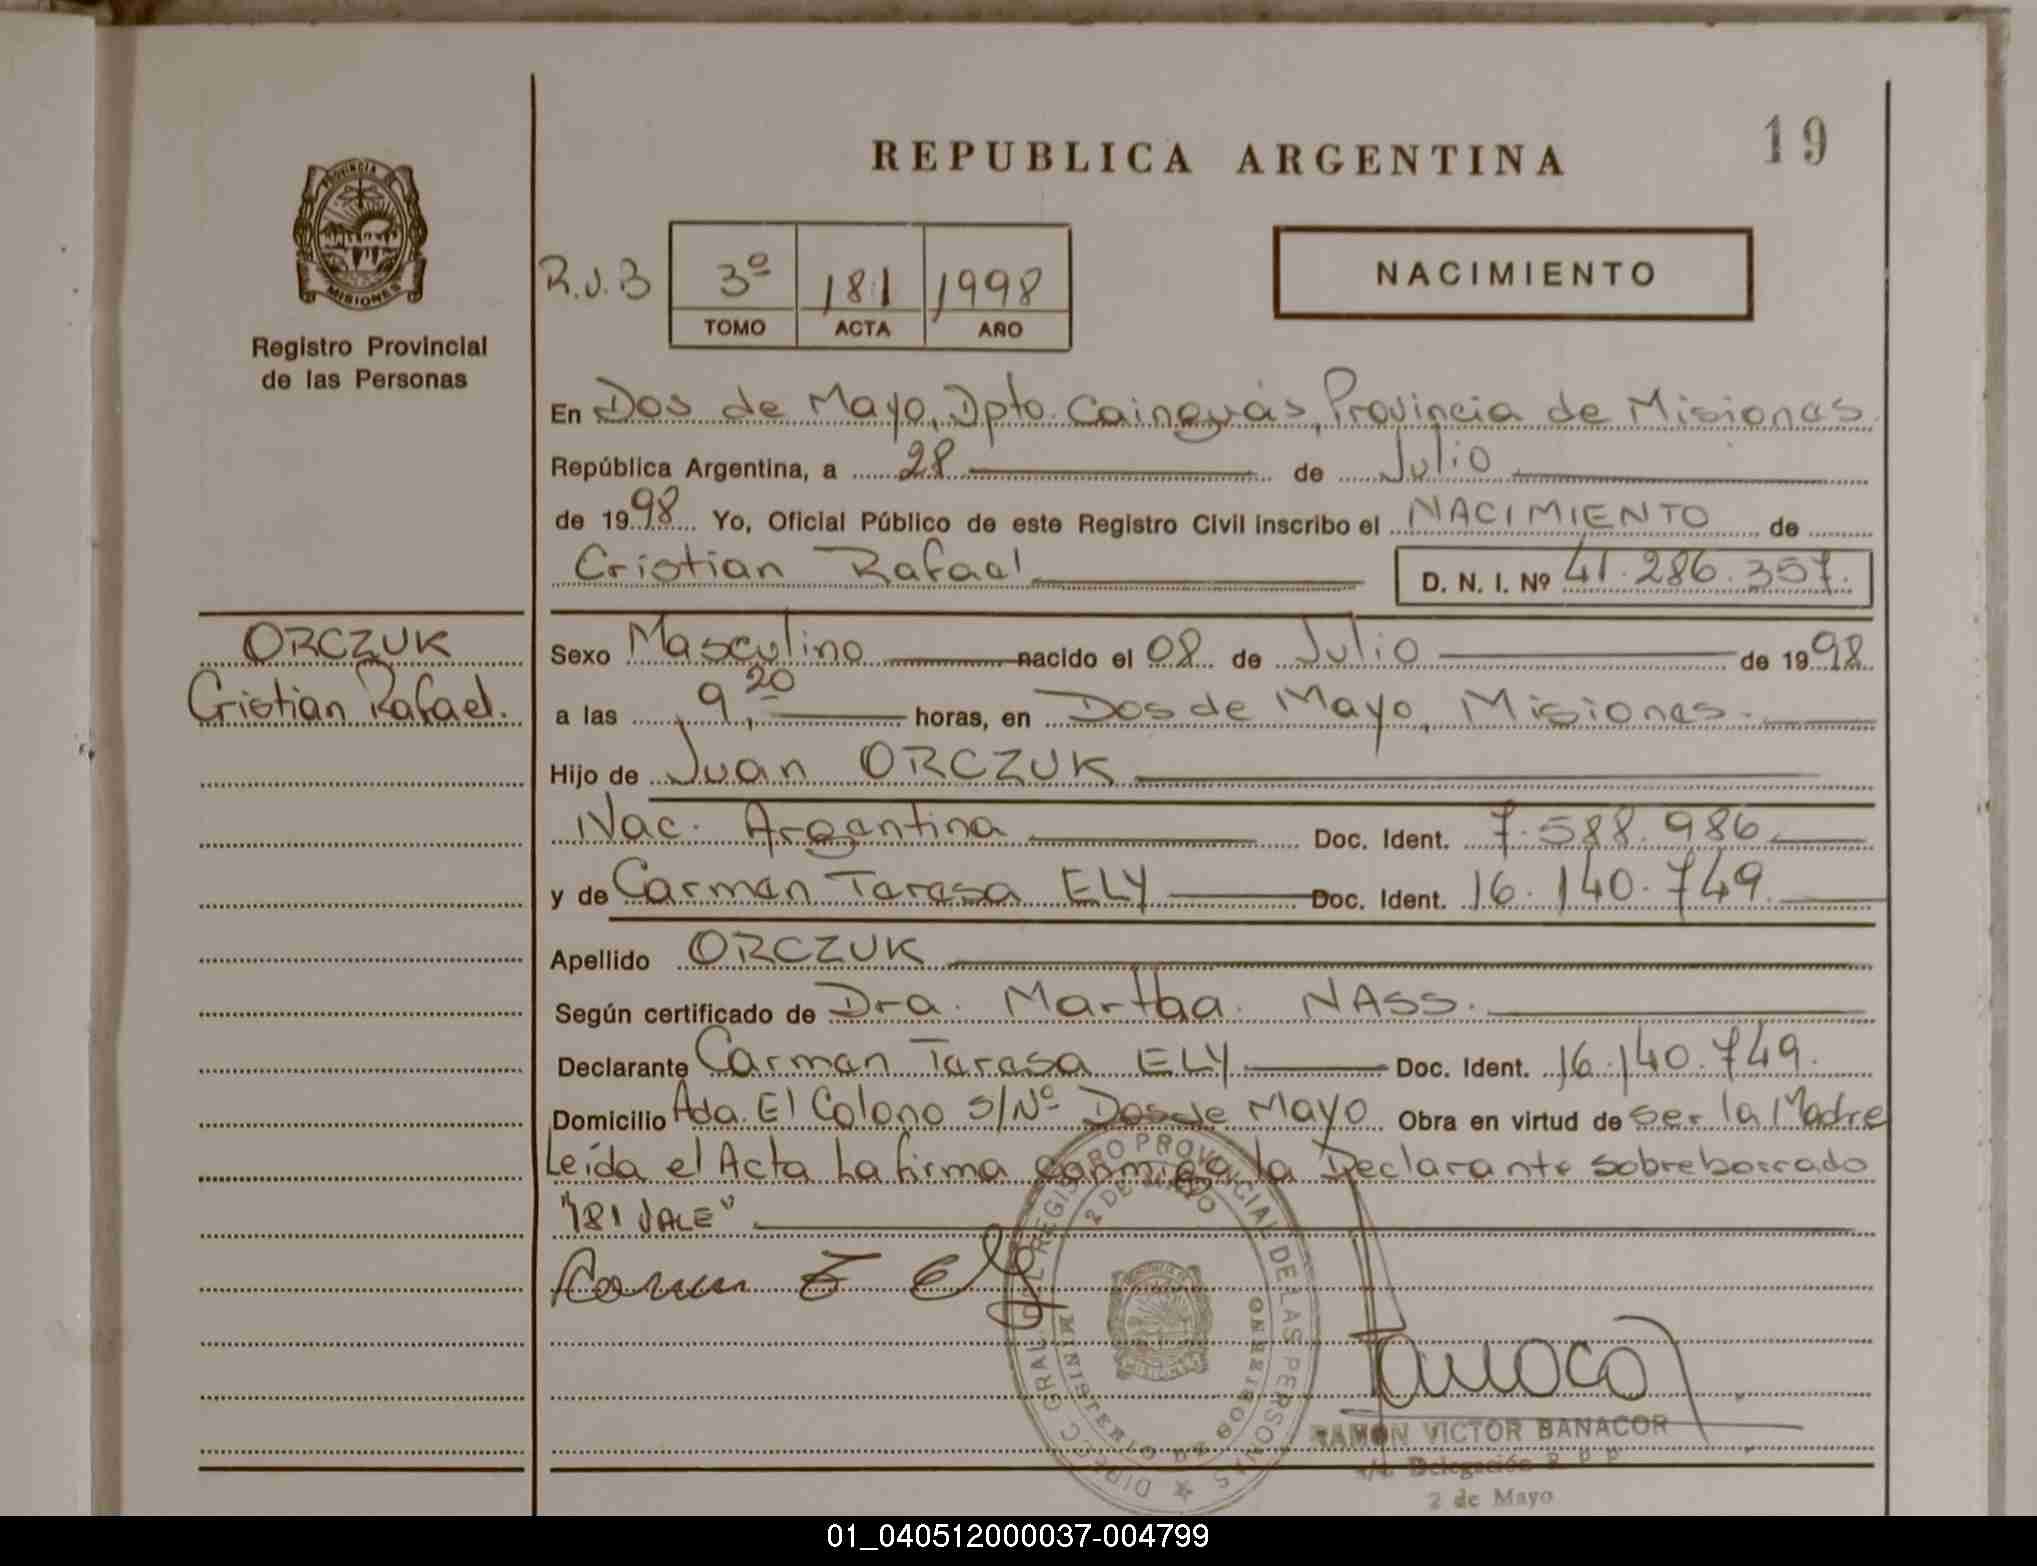 19
REPUBLICA ARGENTINA
PROVINCIA DE
MISIONES
Registro Provincial
de las Personas
R.J.B
3º 181 1998
TOMO ACTA AÑO
NACIMIENTO
En Dos de Mayo, Dpto. Cainguás, Provincia de Misiones.
República Argentina, a 28 de Julio
de 1998 Yo, Oficial Público de este Registro Civil inscribo el NACIMIENTO de
Cristian Rafael D. N. I. Nº 41.286.357.
ORCZUK
Cristian Rafael.
Sexo Masculino nacido el 08 de Julio de 1998
a las 9,20 horas, en Dos de Mayo, Misiones.
Hijo de Juan ORCZUK
Nac. Argentina Doc. Ident. 7.588.986
y de Carmen Teresa ELY Doc. Ident. 16.140.749.
Apellido ORCZUK
Según certificado de Dra. Martha NASS.
Declarante Carmen Teresa ELY Doc. Ident. 16.140.749.
Domicilio Ada. El Colono S/Nº Dos de Mayo Obra en virtud de ser la Madre
Leída el Acta La firma conmigo la Declarante sobreborrado
"181 VALE"
Carmen T Ely
DIRECC GRAL. DEL REGISTRO PROVINCIAL DE LAS PERSONAS
2 DE MAYO
MINISTERIO DE GOBIERNO
RAMON VICTOR BANACOR
Delegación
2 de Mayo
01_040512000037-004799